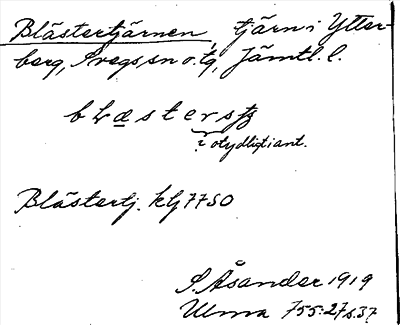 Blästertjärnen, tjärn i Ytter-
berg, Svegs sn o. tg, Jämtl. l.
blæsterstj
? otydligt i ant.
Blästertj. kbl 77 SO
S. Åsander 1919
Ulma 755:27 s. 37.